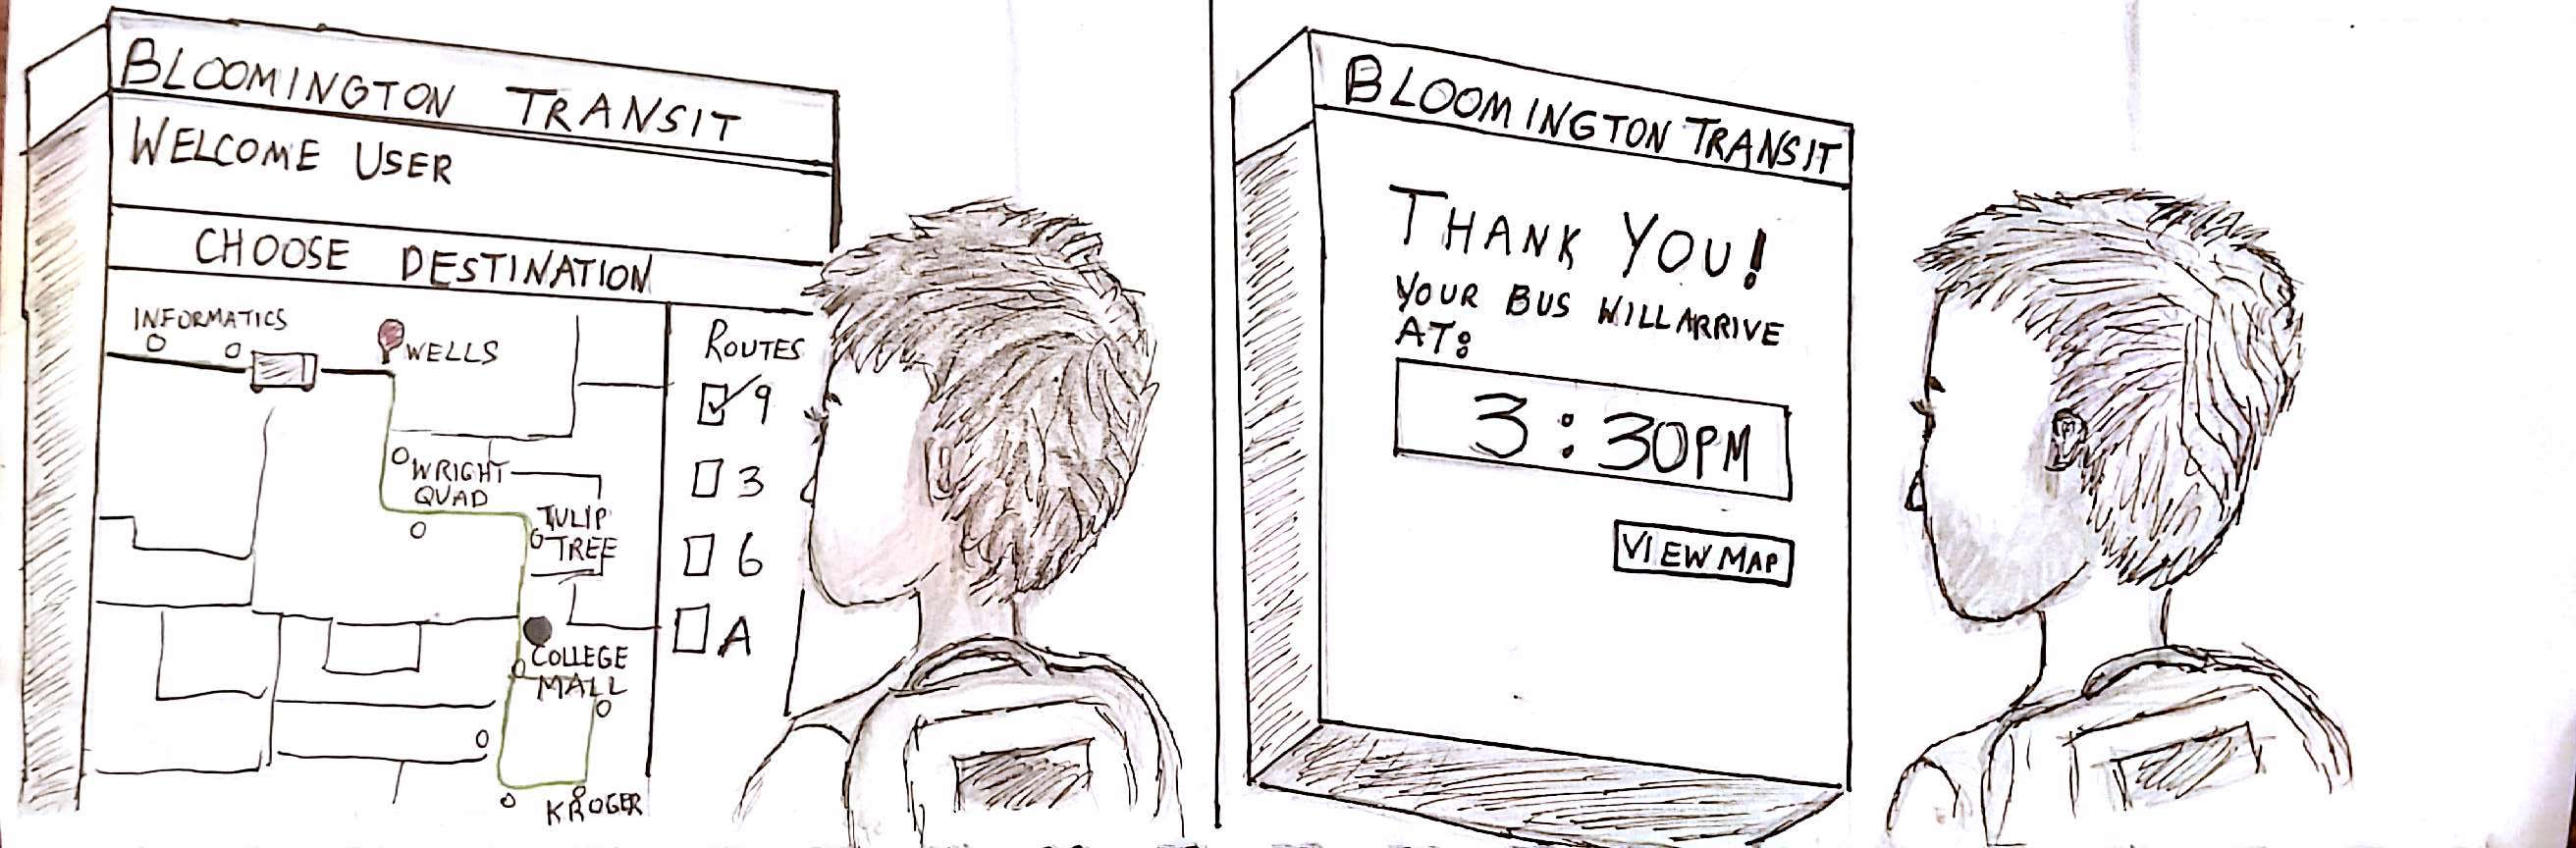 BLOOMINGTON TRANSIT
WELCOME USER
CHOOSE DESTINATION
INFORMATICS
WELLS
WRIGHT
QUAD
TULIP
TREE
COLLEGE
MALL
KROGER
ROUTES
9
3
6
A
BLOOMINGTON TRANSIT
THANK YOU!
YOUR BUS WILL ARRIVE
AT:
3:30PM
VIEW MAP